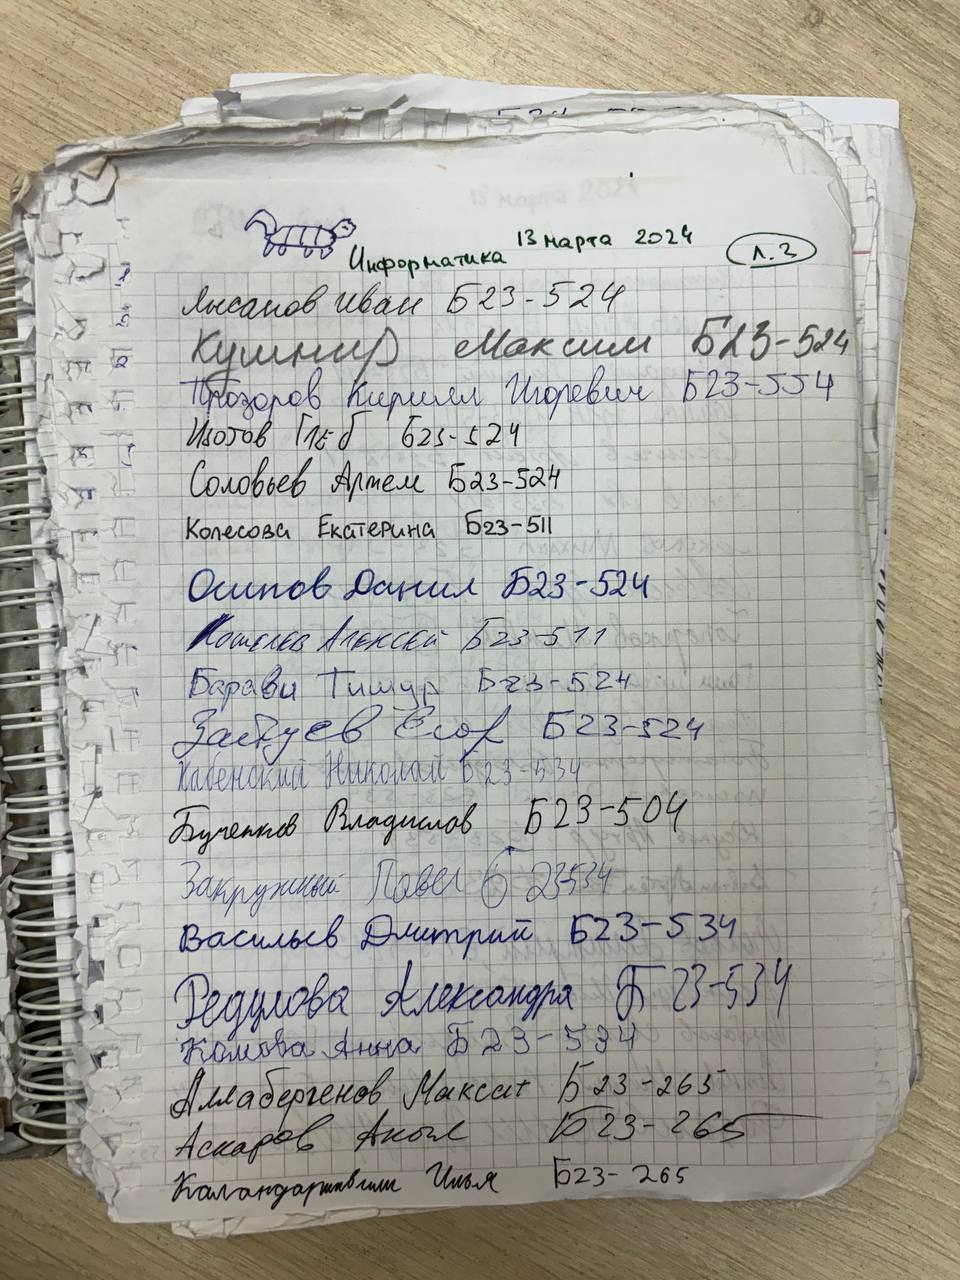 13 марта 2024
Информатика
л. 2
Яксанов Иван Б23-524
Кушнир Максим Б23-524
Прозоров Кирилл Игоревич Б23-554
Изотов Глеб Б23-524
Соловьев Артем Б23-524
Колесова Екатерина Б23-511
Осипов Данил Б23-524
Алексей Б23-511
Барави Тимур Б23-524
Егор Б23-524
Хабенский Николай Б23-534
Бученков Владислав Б23-504
Закружный Павел Б23534
Васильев Дмитрий Б23-534
Редулова Александра Б23-534
Комова Анна Б23-534
Аллабергенов Максат Б23-265
Аскаров Акыл Б23-265
Каландаришвили Илья Б23-265